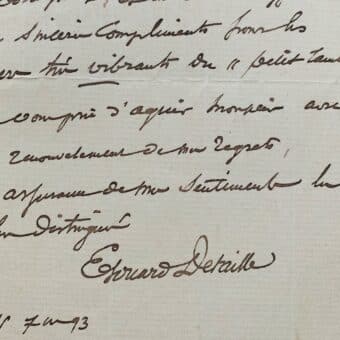 sincères compliments pour les
très vibrants du "petit Tam
d'agréer monsieur avec
renouvellement de mes regrets,
assurance de mes sentiments les
distingués
Edouard Detaille
7 93